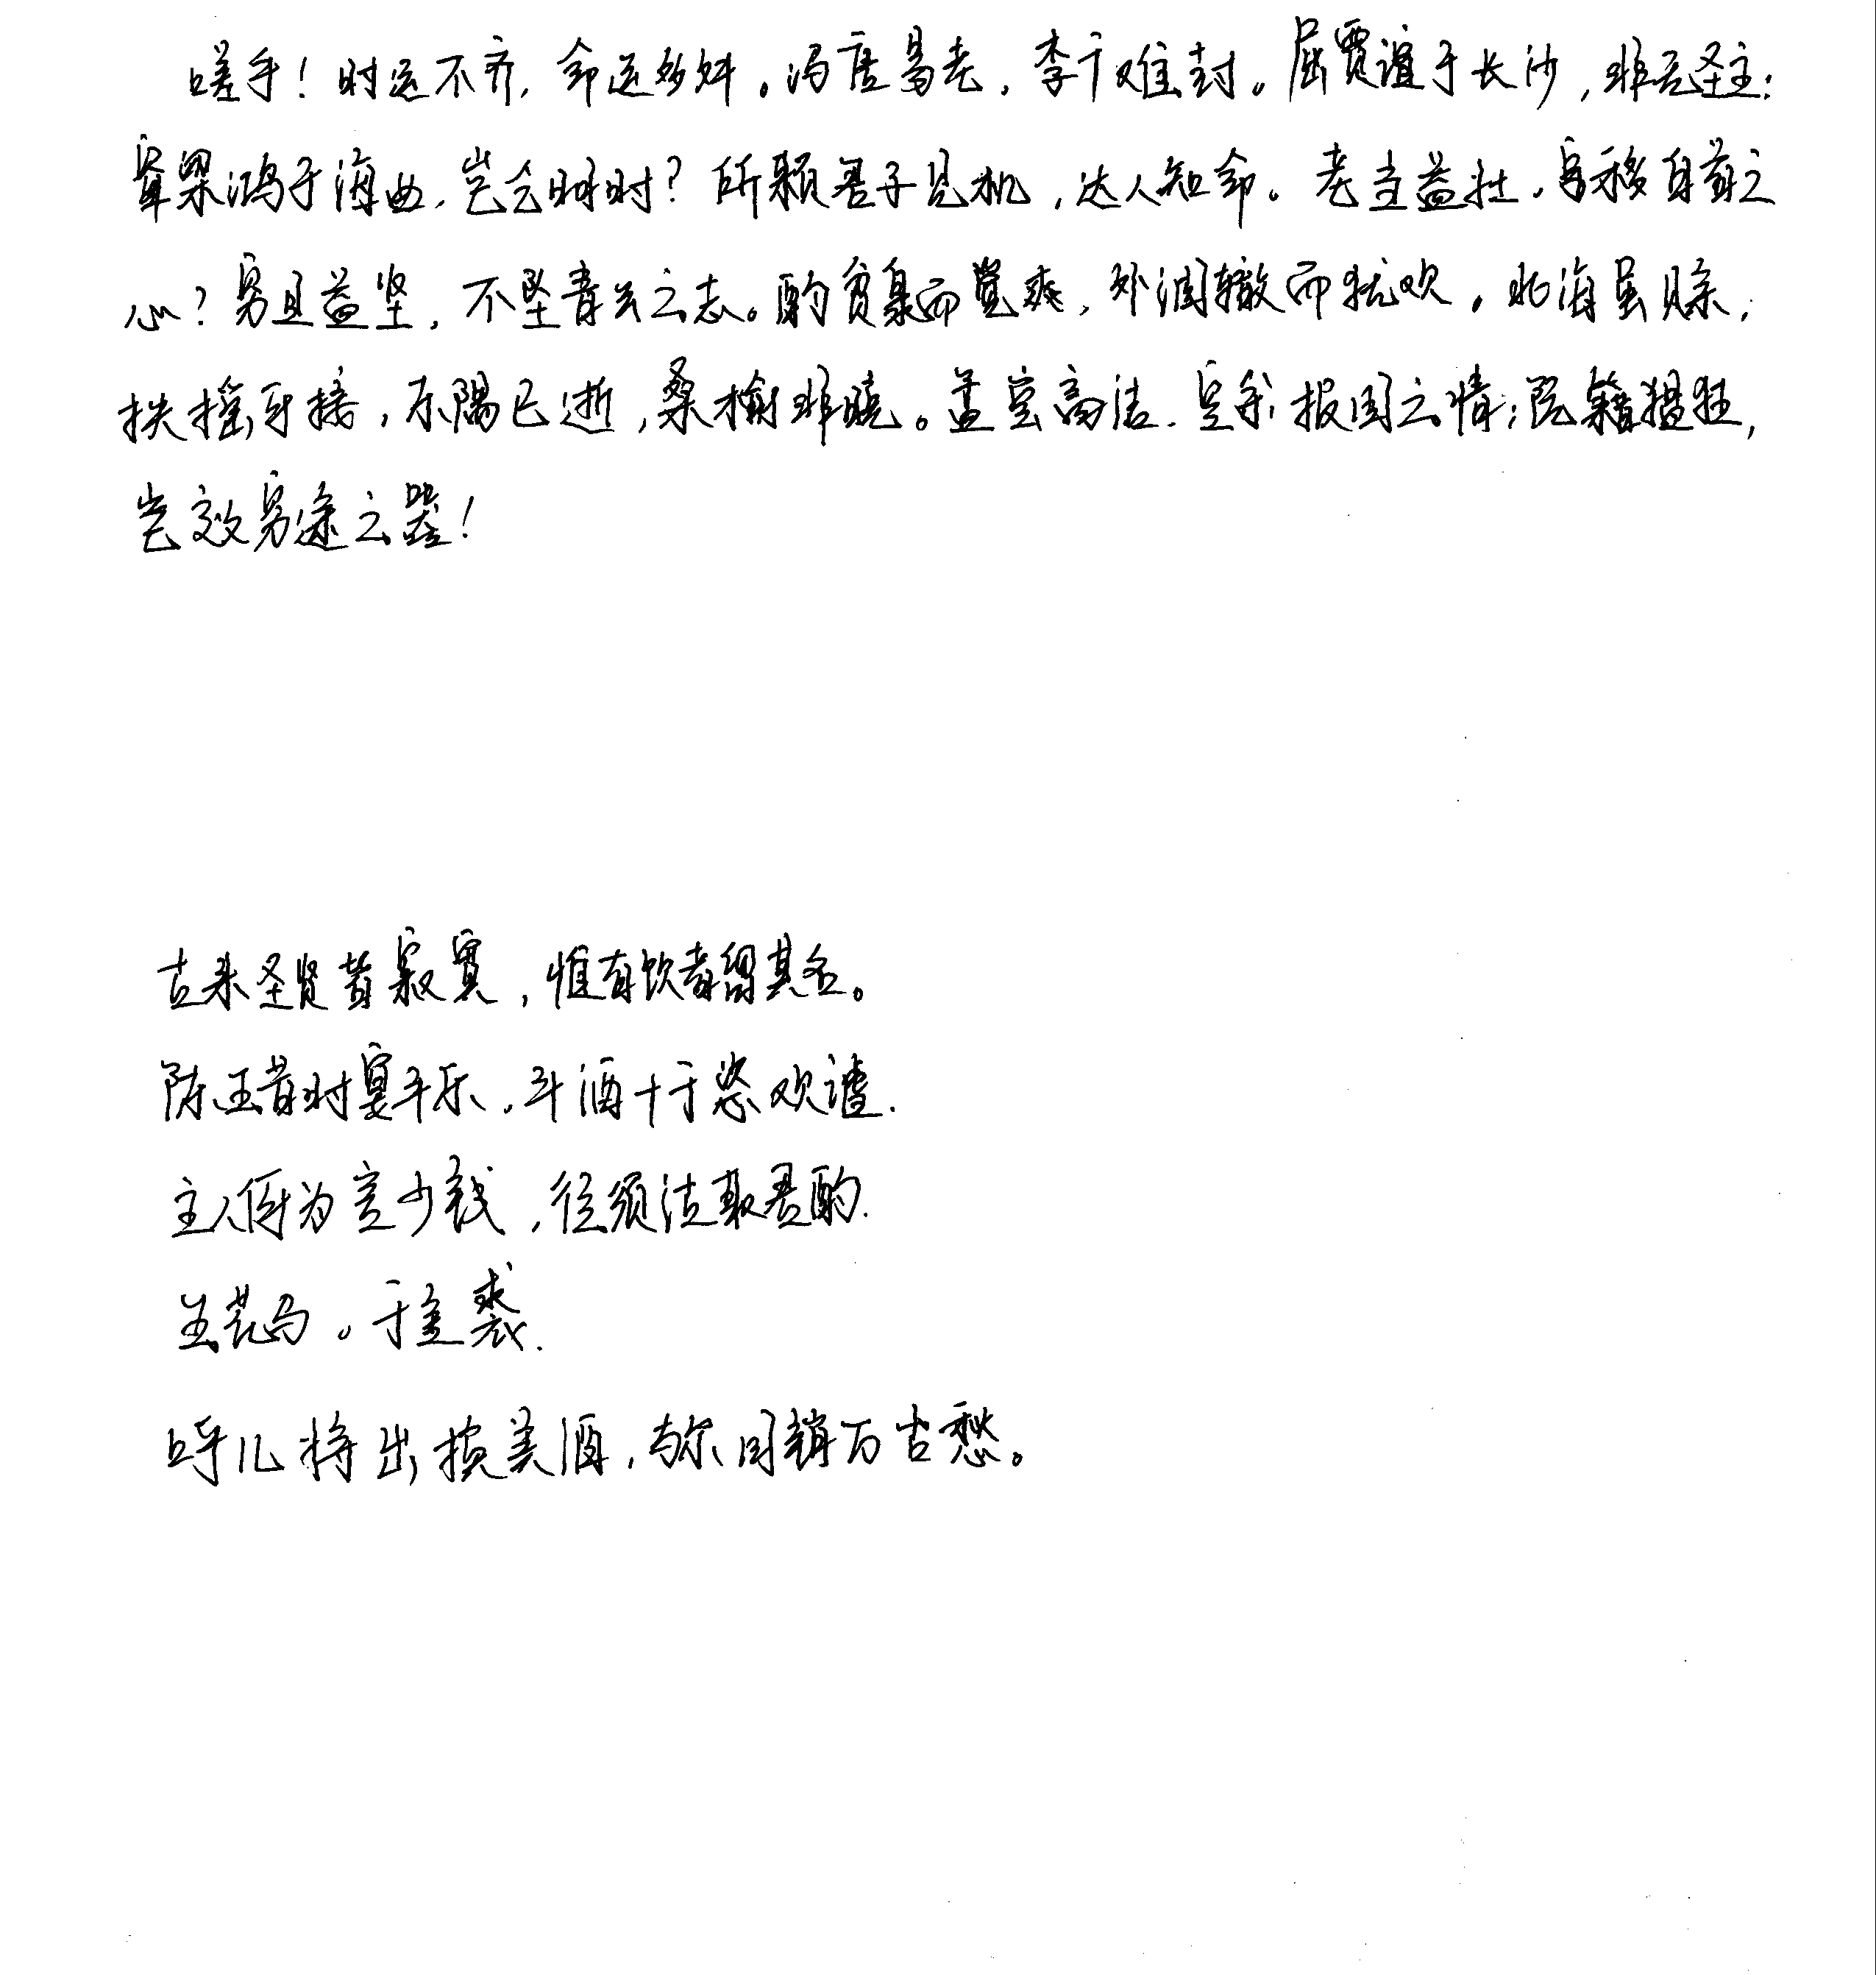 嗟乎！时运不齐，命运多舛。冯唐易老，李广难封。屈贾谊于长沙，非无圣主；
窜梁鸿于海曲，岂乏明时？所赖君子见机，达人知命。老当益壮，宁移白首之
心？穷且益坚，不坠青云之志。酌贪泉而觉爽，处涸辙而犹欢。北海虽赊，
扶摇可接，东隅已逝，桑榆非晚。孟尝高洁，空余报国之情；阮籍猖狂，
岂效穷途之哭！
古来圣贤皆寂寞，惟有饮者留其名。
陈王昔时宴平乐，斗酒十千恣欢谑.
主人何为言少钱，径须沽取君酌.
五花马。千金裘.
呼儿将出换美酒，与尔同销万古愁。